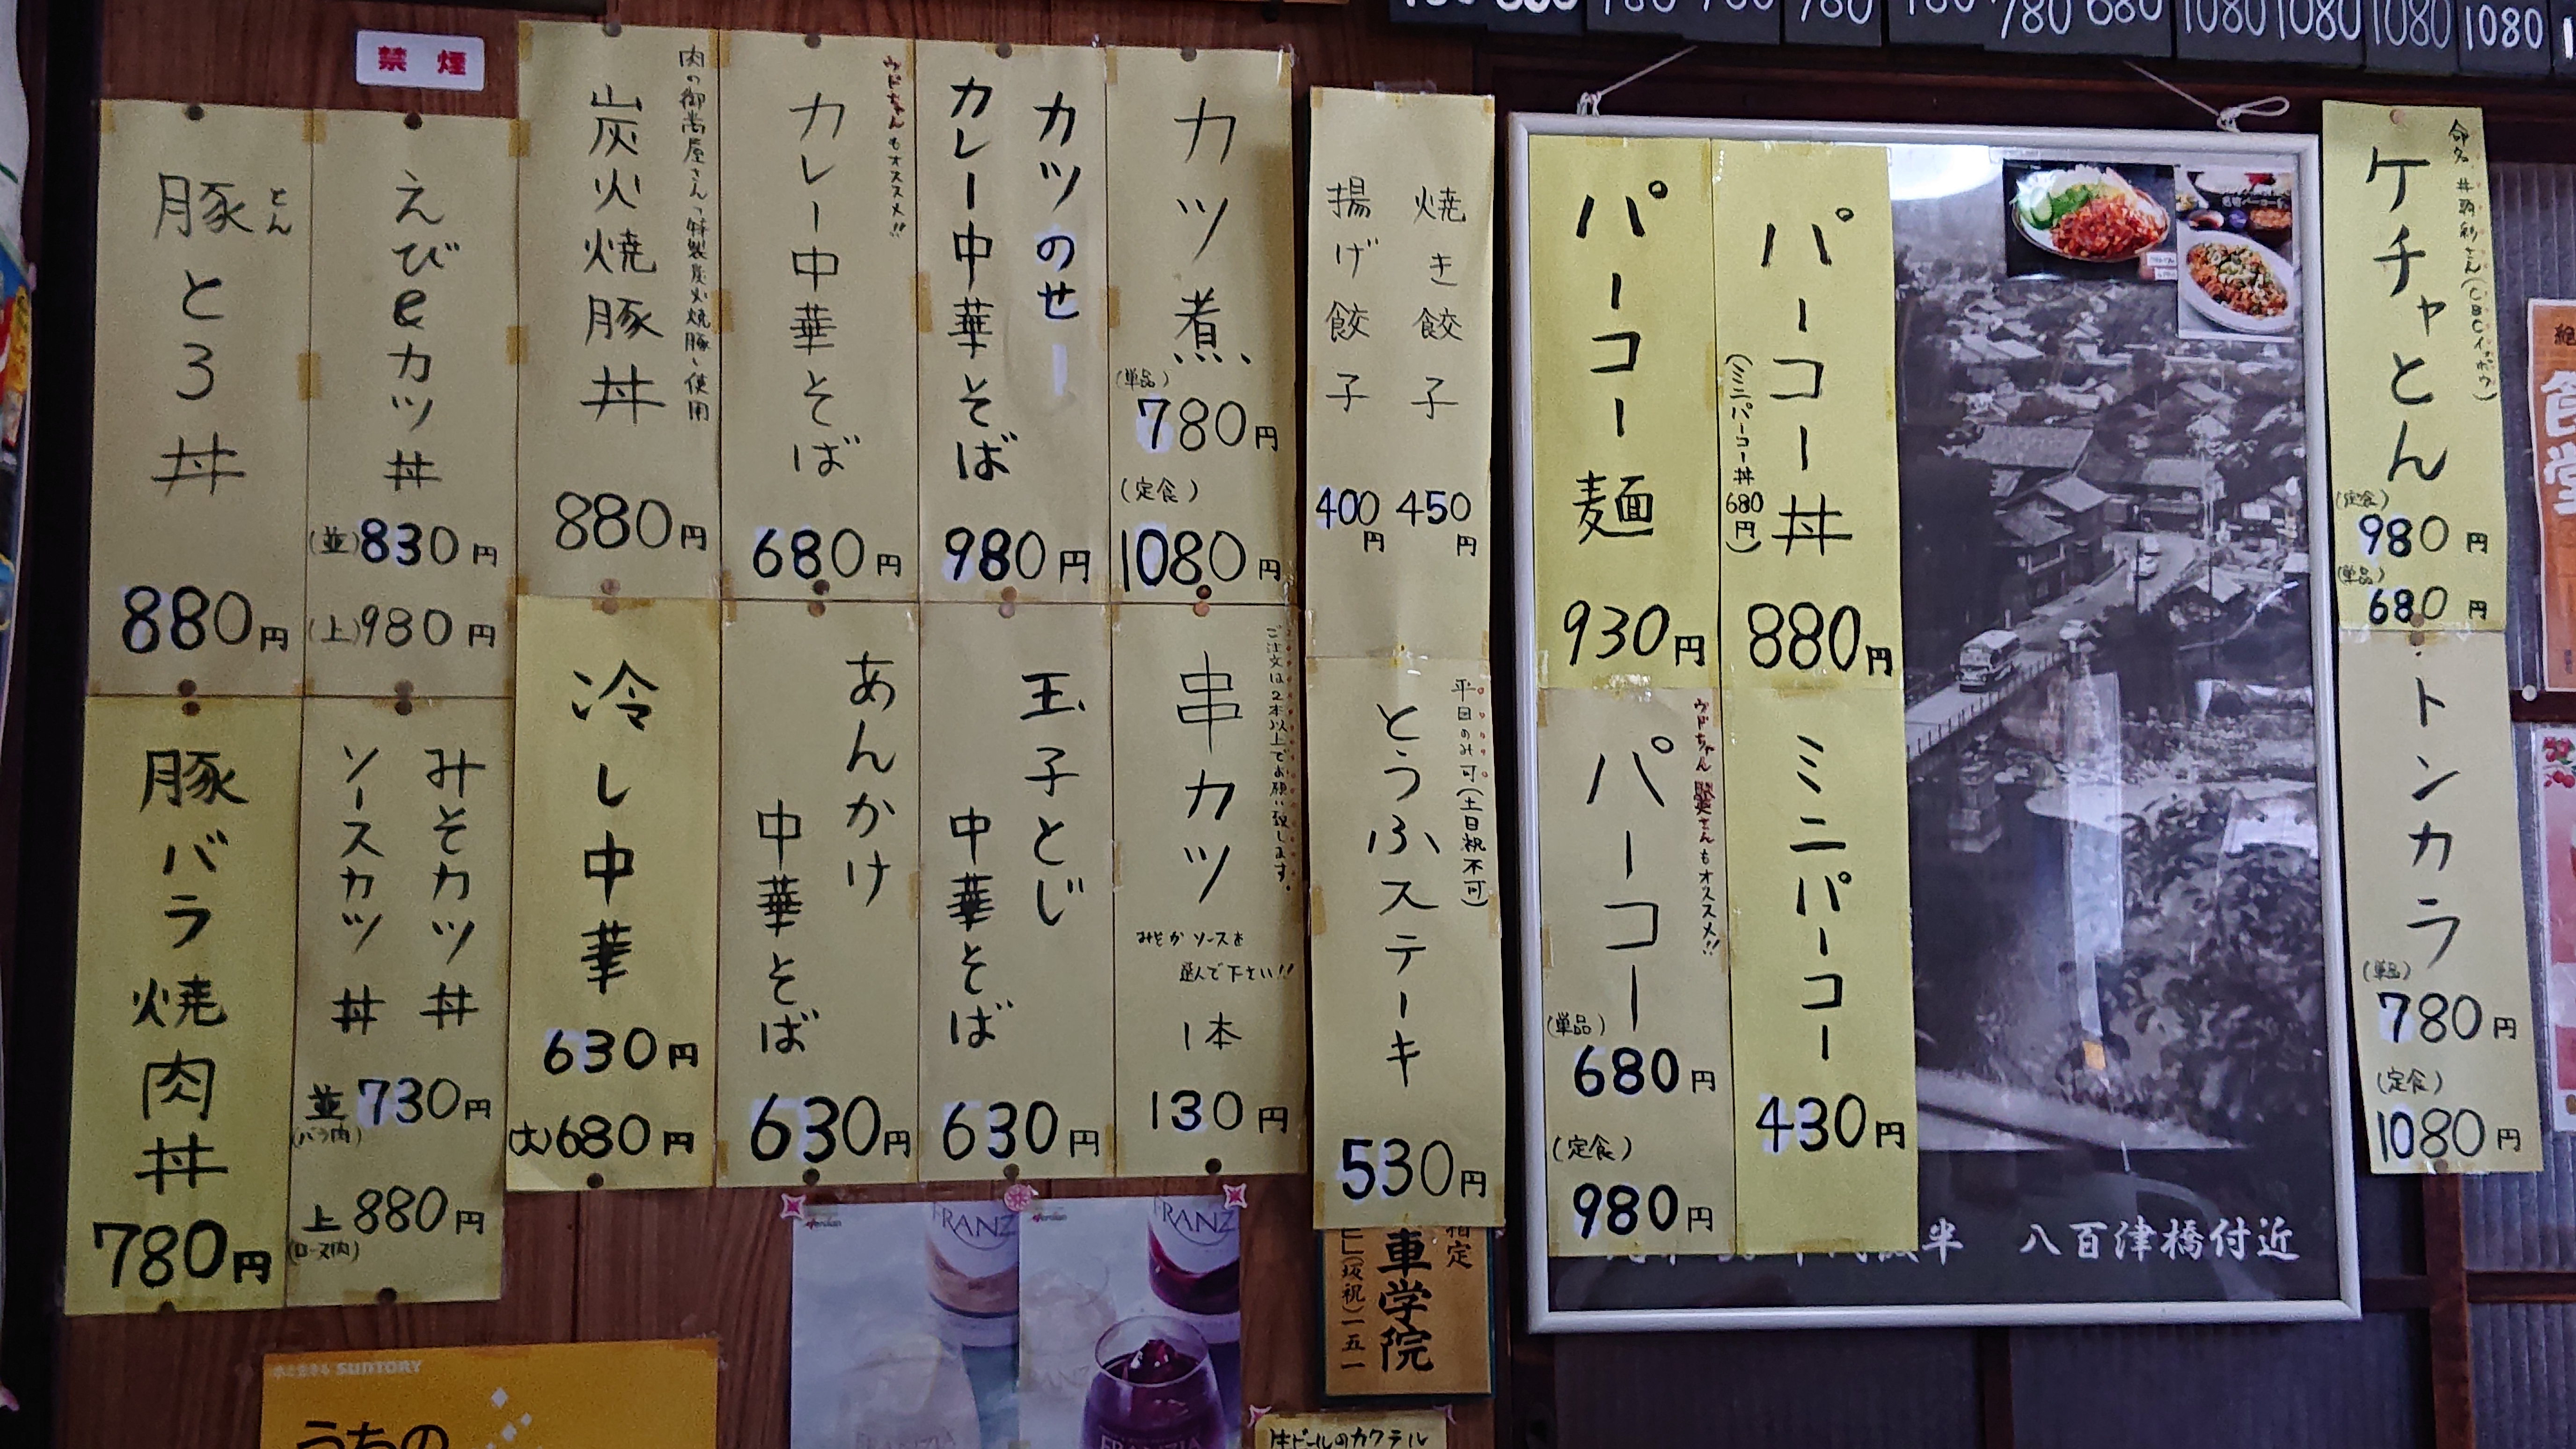 禁煙
780 680 1080 1080 1080 1080
命名 井戸
ケチャとん
(定食)
980円
(単品)
680円
トンカラ
(単品)
780円
(定食)
1080円
パーコー丼
(ミニパーコー丼 680円)
880円
パーコー麺
930円
ミニパーコー
430円
ウドちゃん
もオススメ!!
パーコー
(単品)
680円
(定食)
980円
八百津橋付近
焼き餃子
450円
揚げ餃子
400円
平日のみ可(土日祝不可)
とうふステーキ
530円
カツ煮
(単品)
780円
(定食)
1080円
カツのせー
カレー中華そば
980円
ウドちゃんもオススメ!!
カレー中華そば
680円
肉の御嵩屋さんの特製炭火焼豚を使用
炭火焼豚丼
880円
えび&カツ丼
(並)830円
(上)980円
とん
豚とろ丼
880円
ご注文は2本以上でお願い致します。
串カツ
みそかソースを
選んで下さい!!
1本
130円
玉子とじ
中華そば
630円
あんかけ
中華そば
630円
冷し中華
630円
(大)680円
みそカツ丼
ソースカツ丼
並 730円
(バラ肉)
上 880円
(ロース肉)
豚バラ焼肉丼
780円
指定
車学院
(坂祝)一五一
FRANZ
FRANZ
FRANZIA
FRANZIA
水と生きる SUNTORY
うちの
生ビールのカクテル